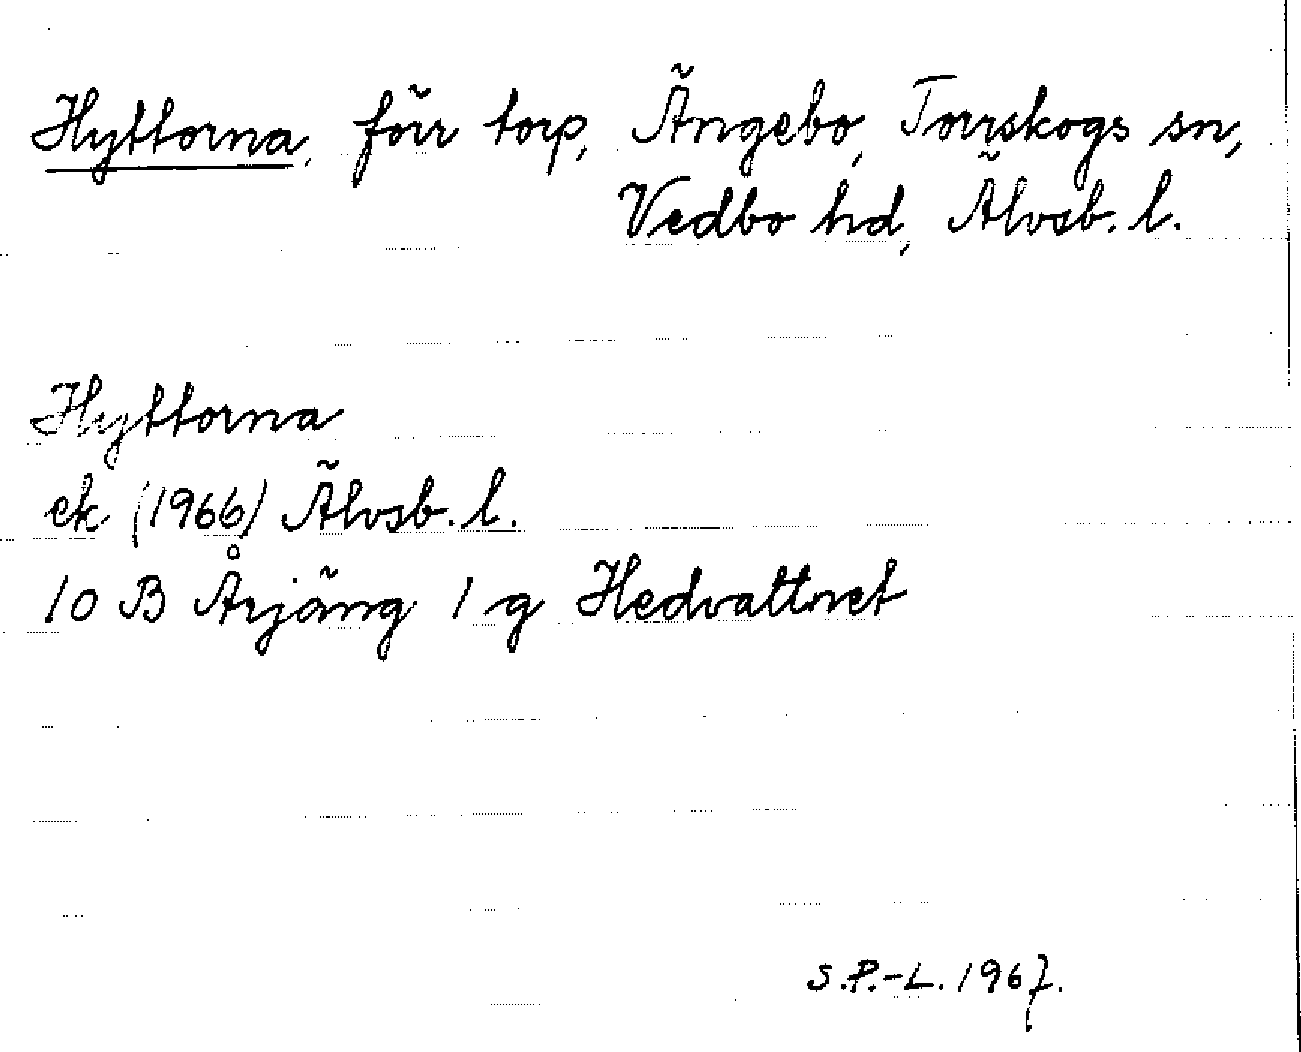 Hyttorna, förr torp, Ängebo, Torrskogs sn,
Vedbo hd, Älvsb. l.
Hyttorna
ek (1966) Älvsb. l.
10 B Årjäng 1 g Hedvattnet
S.P.-L. 1967.